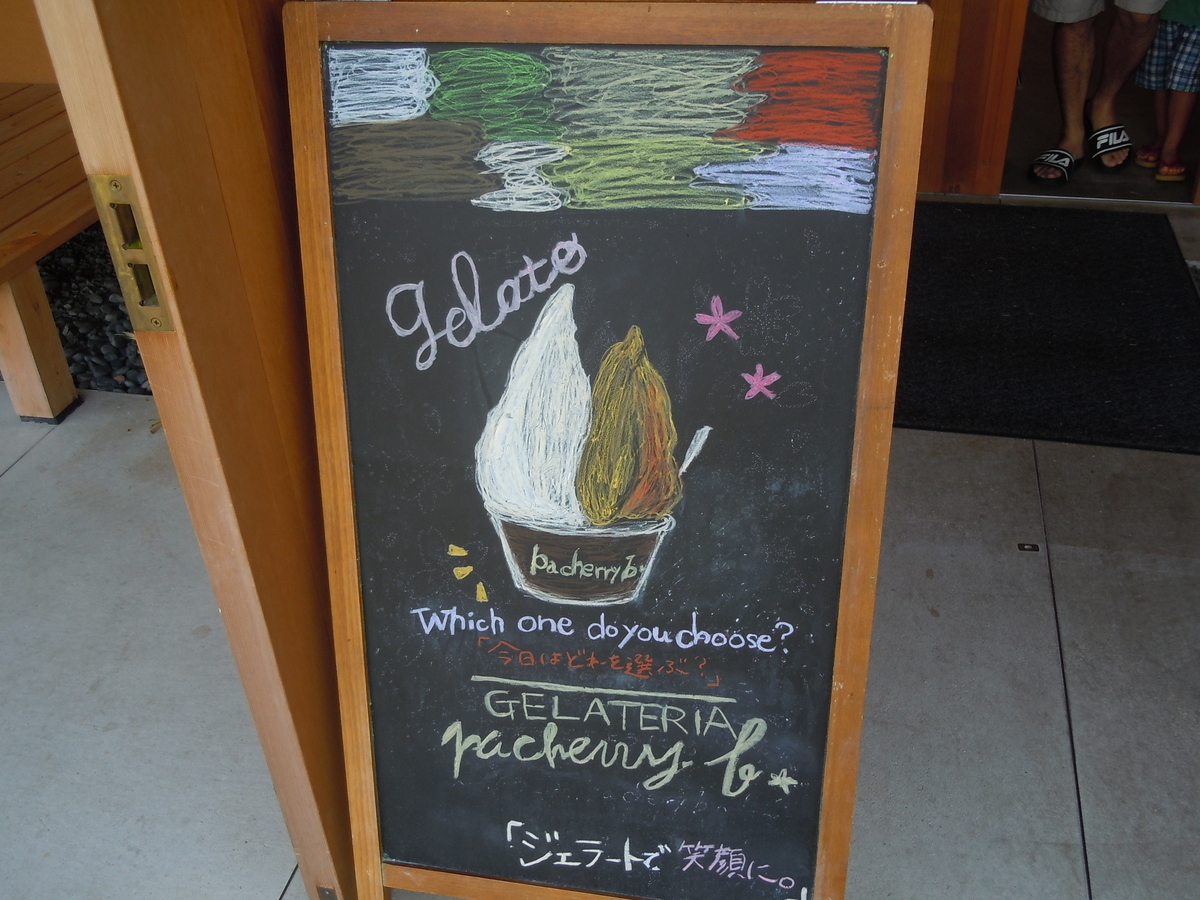 FILA
FILA
gelato
pacherry b.
Which one do you choose?
「今日はどれを選ぶ?」
GELATERIA
pacherry. b
「ジェラートで笑顔に。」